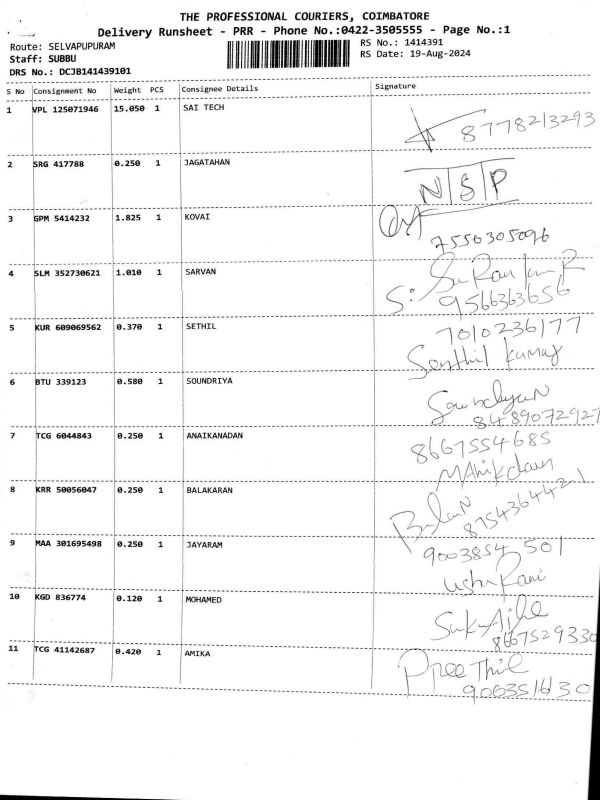 THE PROFESSIONAL COURIERS, COIMBATORE
Delivery Runsheet - PRR - Phone No.:0422-3505555 - Page No.:1
Route: SELVAPUPURAM
Staff: SUBBU
DRS No.: DCJB141439101
RS No.: 1414391
RS Date: 19-Aug-2024
S No Consignment No Weight PCS Consignee Details Signature
1 VPL 125071946 15.050 1 SAI TECH
8778213293
2 SRG 417788 0.250 1 JAGATAHAN
N|S|P
3 GPM 5414232 1.825 1 KOVAI
7550305096
4 SLM 352730621 1.010 1 SARVAN
S:
9566363656
5 KUR 609069562 0.370 1 SETHIL
7010236177
Senthil Kumar
6 BTU 339123 0.580 1 SOUNDRIYA
8489072927
7 TCG 6044843 0.250 1 ANAIKANADAN
8667554685
8 KRR 50056047 0.250 1 BALAKARAN
8754364421
9 MAA 301695498 0.250 1 JAYARAM
9003854 501
Usha Rani
10 KGD 836774 0.120 1 MOHAMED
8667529330
11 TCG 41142687 0.420 1 AMIKA
Preethil